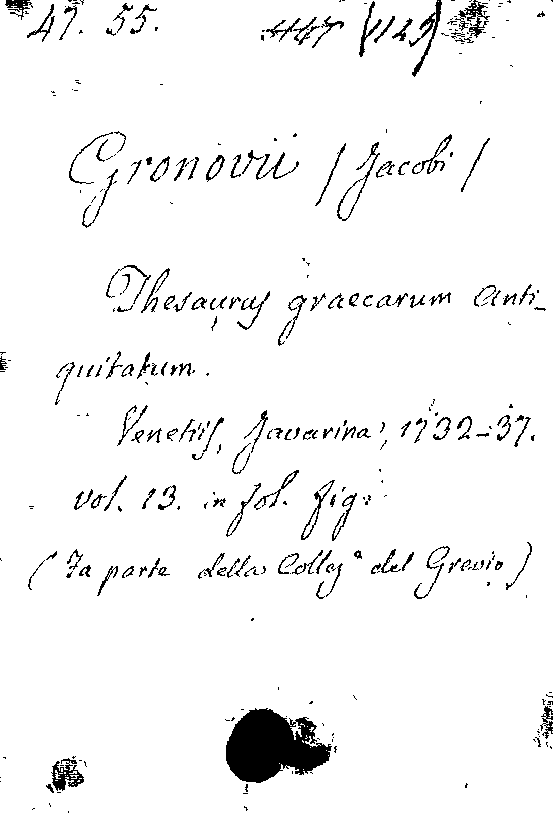 47. 55. (1149)
Gronovii (Jacobi)
Thesaurus graecarum Anti-
quitatum.
Venetiis, Javarina, 1732-37.
vol. 13. in fol. fig:
(Fa parte della Collezª del Grevio)